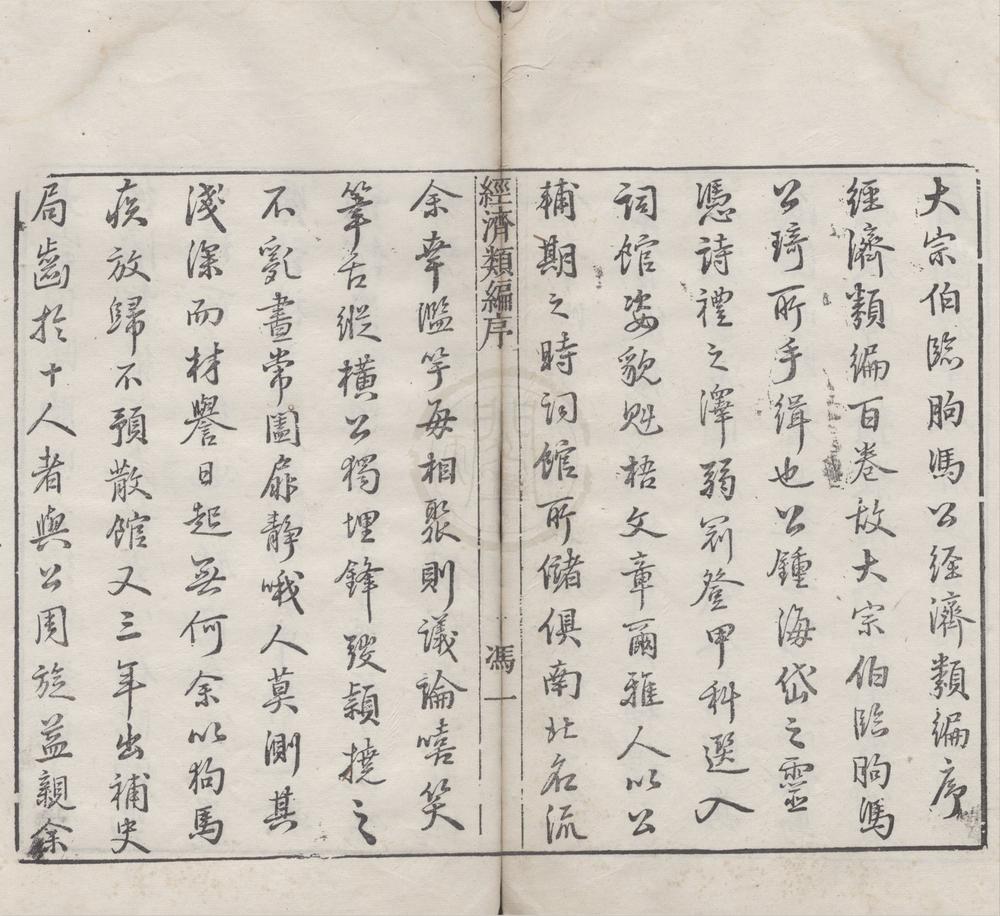 大宗伯臨朐馮公經濟類編序
經濟類編百卷故大宗伯臨朐馮
公琦所手緝也公鍾海岱之靈
憑詩禮之澤弱冠登甲科選入
詞館姿貌魁梧文章爾雅人以公
輔期之時詞館所儲俱南北名流
經濟類編序
馮一
余幸濫竽每相聚則議論嘻笑
筆舌縱橫公獨埋鋒斂穎撓之
不亂晝常闔扉靜哦人莫測其
淺深而材譽日起無何余以狗馬
疾放歸不預散館又三年出補史
局齒於十人者與公周旋益親余